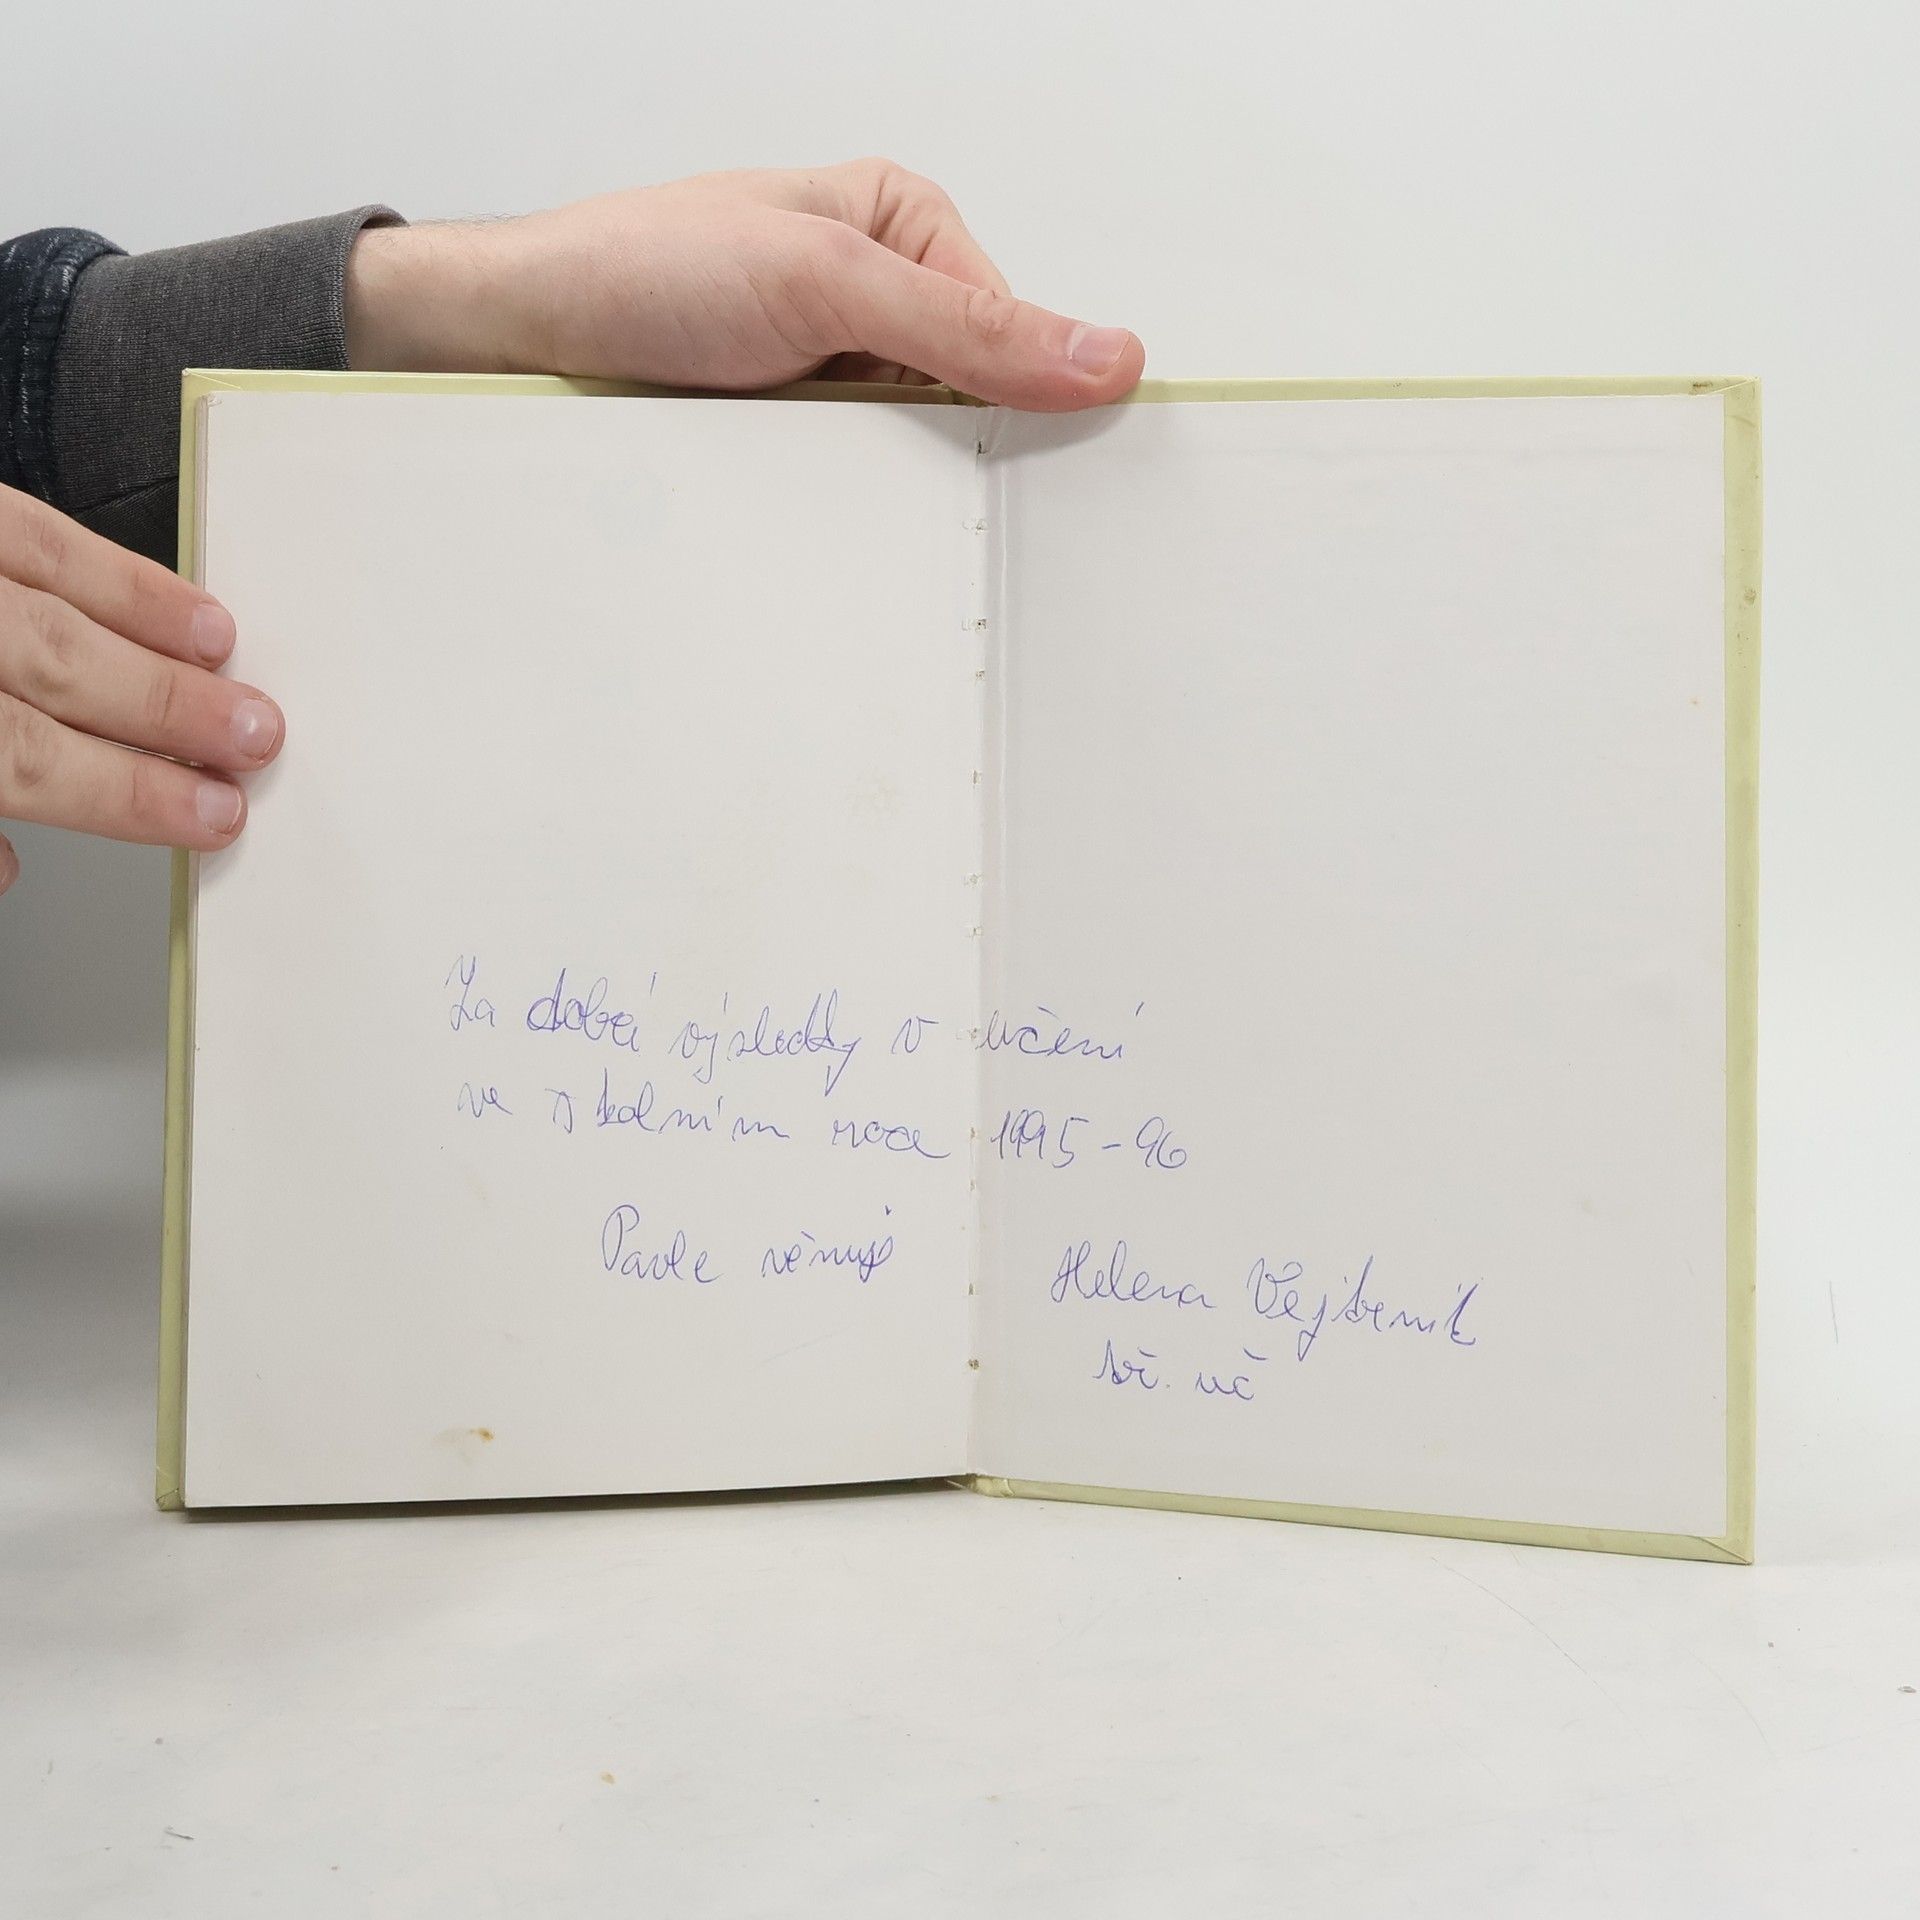 Za dobré výsledky v učení
ve školním roce 1995-96
Pavle věnuje
Helena
tř. uč